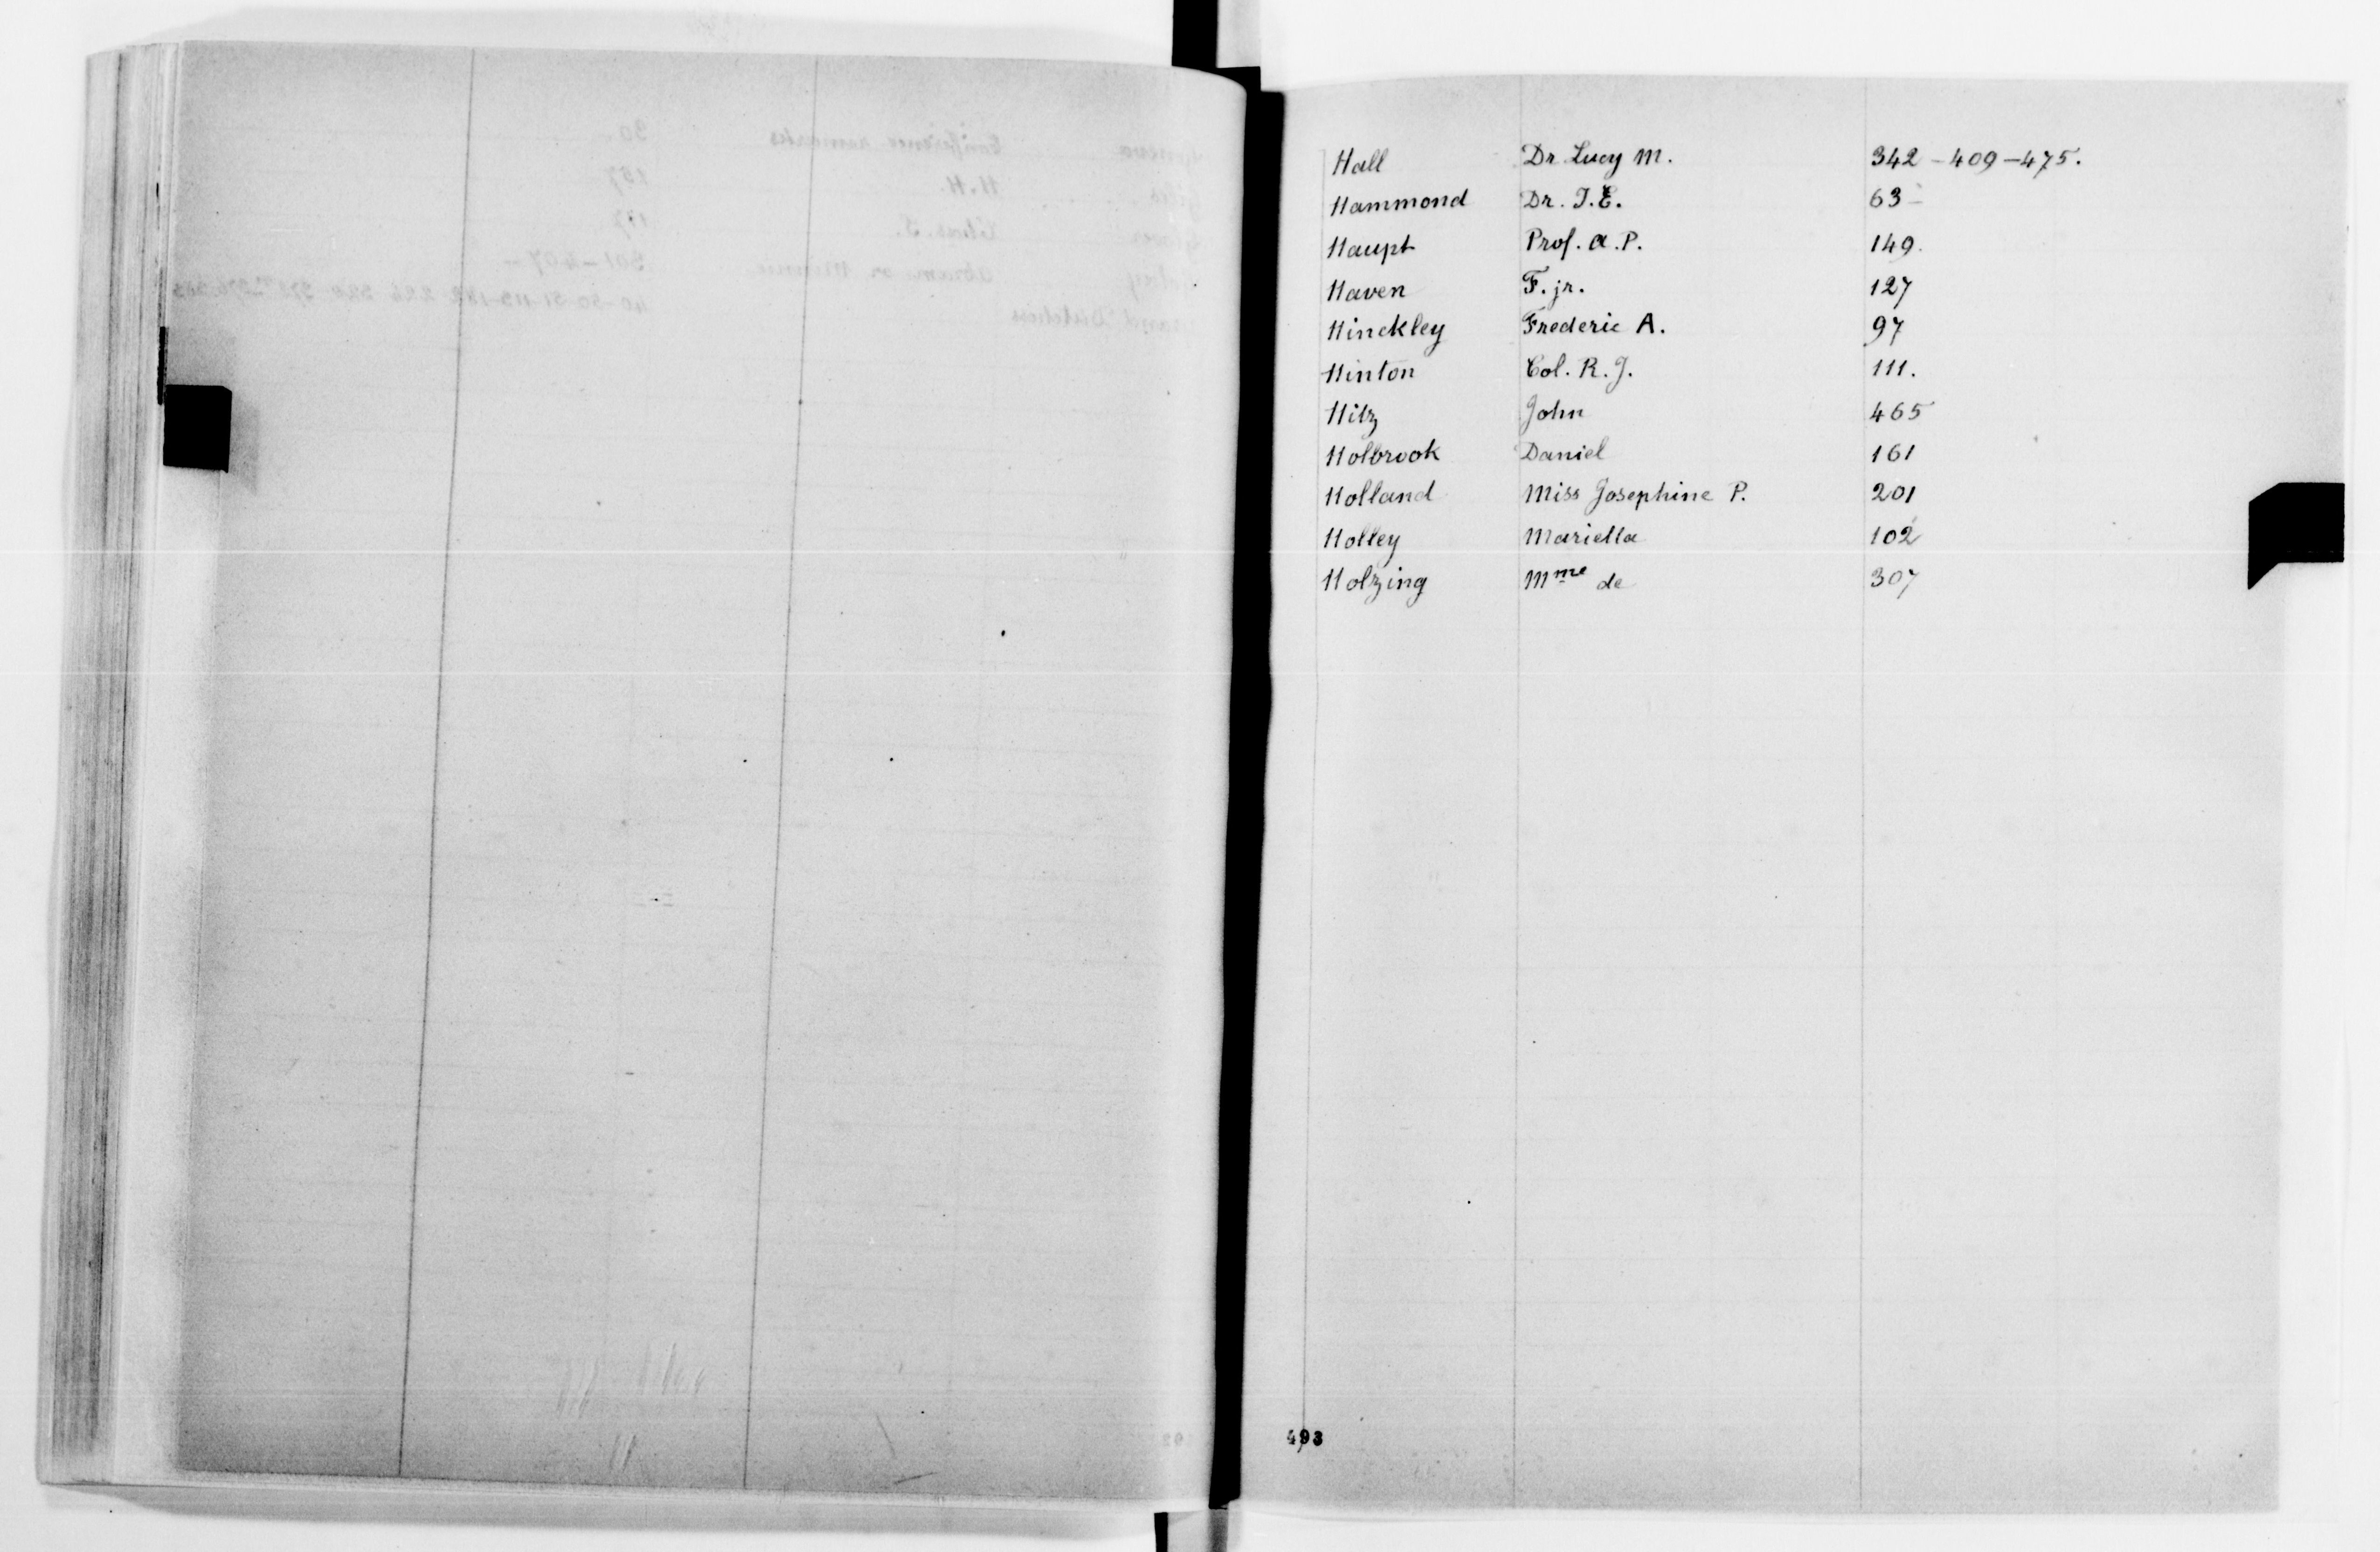 Hall Dr Lucy M. 342 - 409 - 475.
Hammond Dr. J. E. 63 -
Haupt Prof. A. P. 149.
Haven F. jr. 127
Hinckley Frederic A. 97
Hinton Col. R. J. 111.
Hitz John 465
Holbrook Daniel 161
Holland Miss Josephine P. 201
Holley Marietta 102
Holzing Mme de 307
493